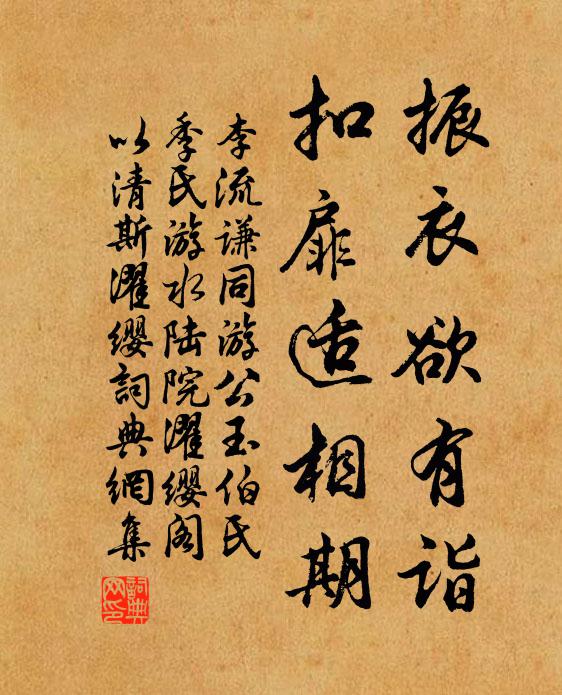 振衣欲有诣
扣扉适相期
李流谦同游公玉伯氏
季氏游水陆院濯缨阁
以清斯濯缨詞典網集
詞典網印